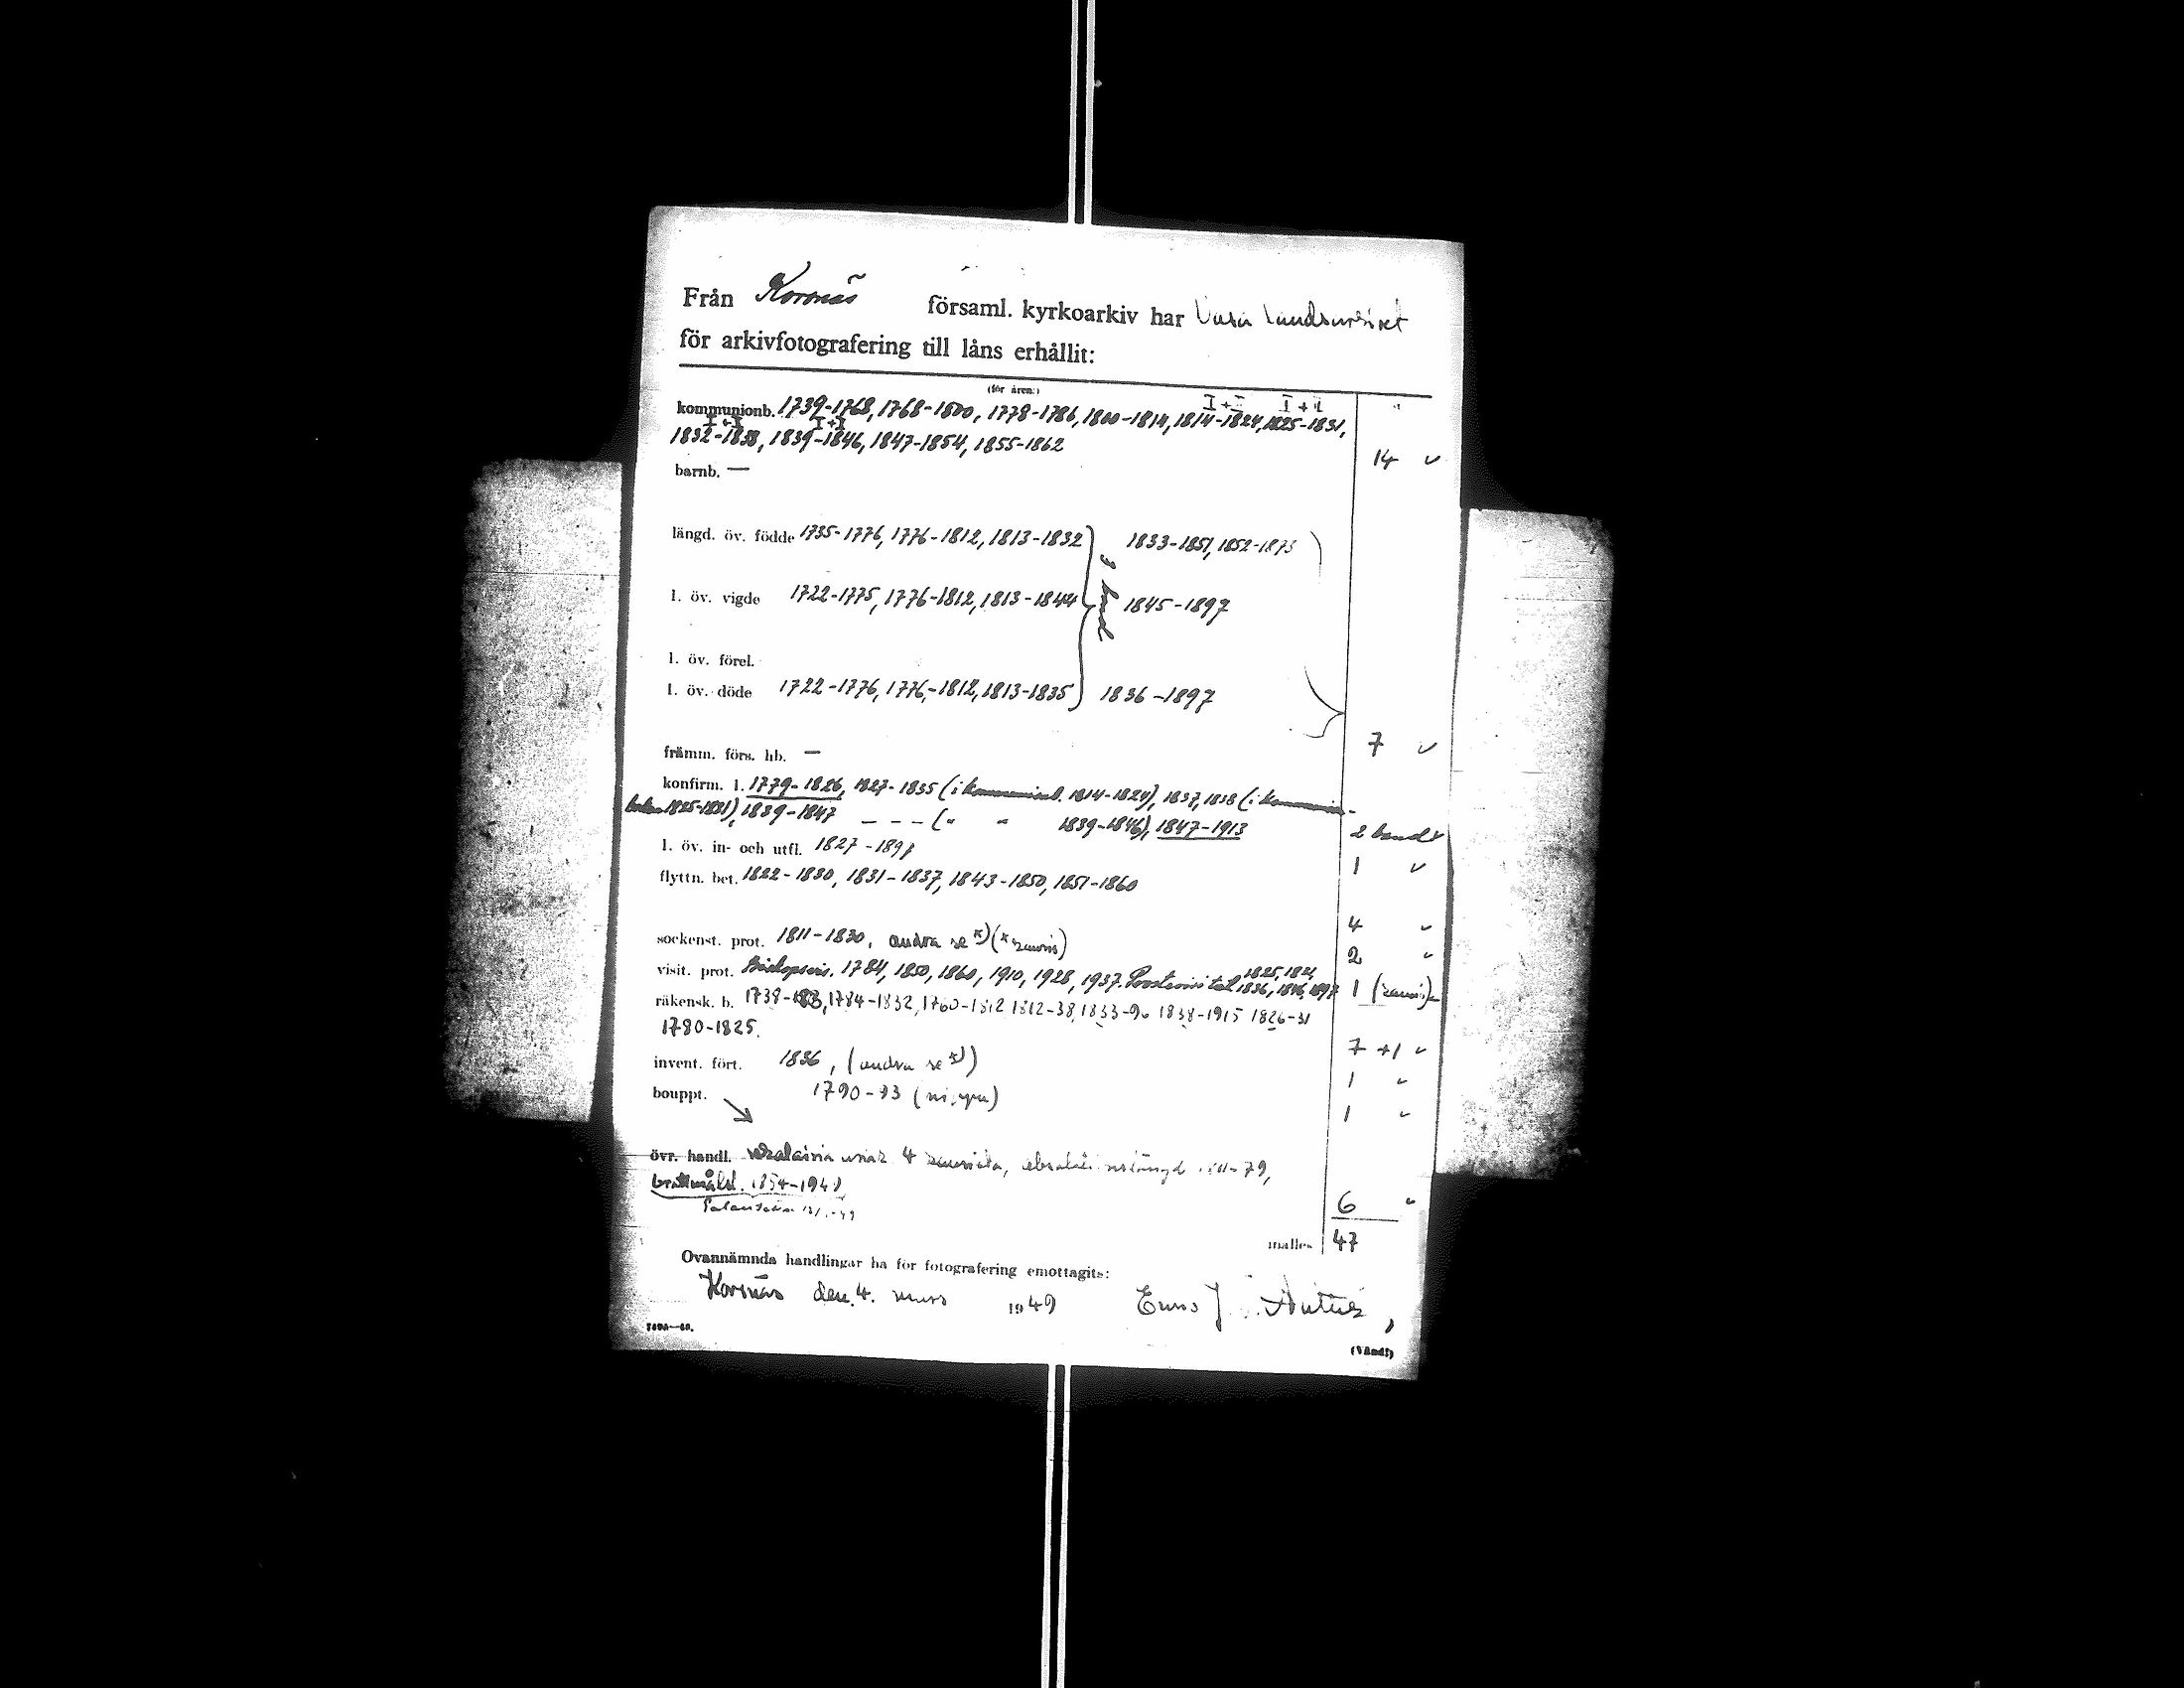 Från Korsnäs församl. kyrkoarkiv har Vasa landsarkivet
för arkivfotografering till låns erhållit:
(för åren:)
I+II I+II
kommunionb. 1739-1768, 1768-1800, 1778-1786, 1800-1814, 1814-1824, 1825-1831,
I+I I+I
1832-1838, 1839-1846, 1847-1854, 1855-1862 14 ✓
barnb. —
längd. öv. födde 1735-1776, 1776-1812, 1813-1832 1833-1851, 1852-1873
3 band
l. öv. vigde 1722-1775, 1776-1812, 1813-1844 1845-1897
l. öv. förel.
l. öv. döde 1722-1776, 1776-1812, 1813-1835 1836-1897
7 ✓
främm. förs. hb. —
konfirm. l. 1779-1826, 1827-1835 (i kommunionb. 1814-1824), 1837, 1838 (i kommunion-
boken 1825-1831), 1839-1847 — — — (" " 1839-1846), 1847-1913 2 band ✓
l. öv. in- och utfl. 1827-1897 1 ✓
flyttn. bet. 1822-1830, 1831-1837, 1843-1850, 1851-1860
4 ✓
sockenst. prot. 1811-1830, andra se x) 2 ✓
1825, 1821,
visit. prot. Biskopsvis. 1784, 1850, 1860, 1910, 1928, 1937. 1836, 1846, 1897 1
räkensk. b. 1784-1832, 1760-1812 1812-38, 1833-96 1838-1915 1826-31
1780-1825. 7 +1 ✓
invent. fört. 1836, (andra se x)) 1 ✓
bouppt. 1790-93 1 ✓
övr. handl. 4
1854-1948 6 ✓
47
Ovannämnda handlingar ha för fotografering emottagits:
Korsnäs den 4. mars 1949
(Vänd!)